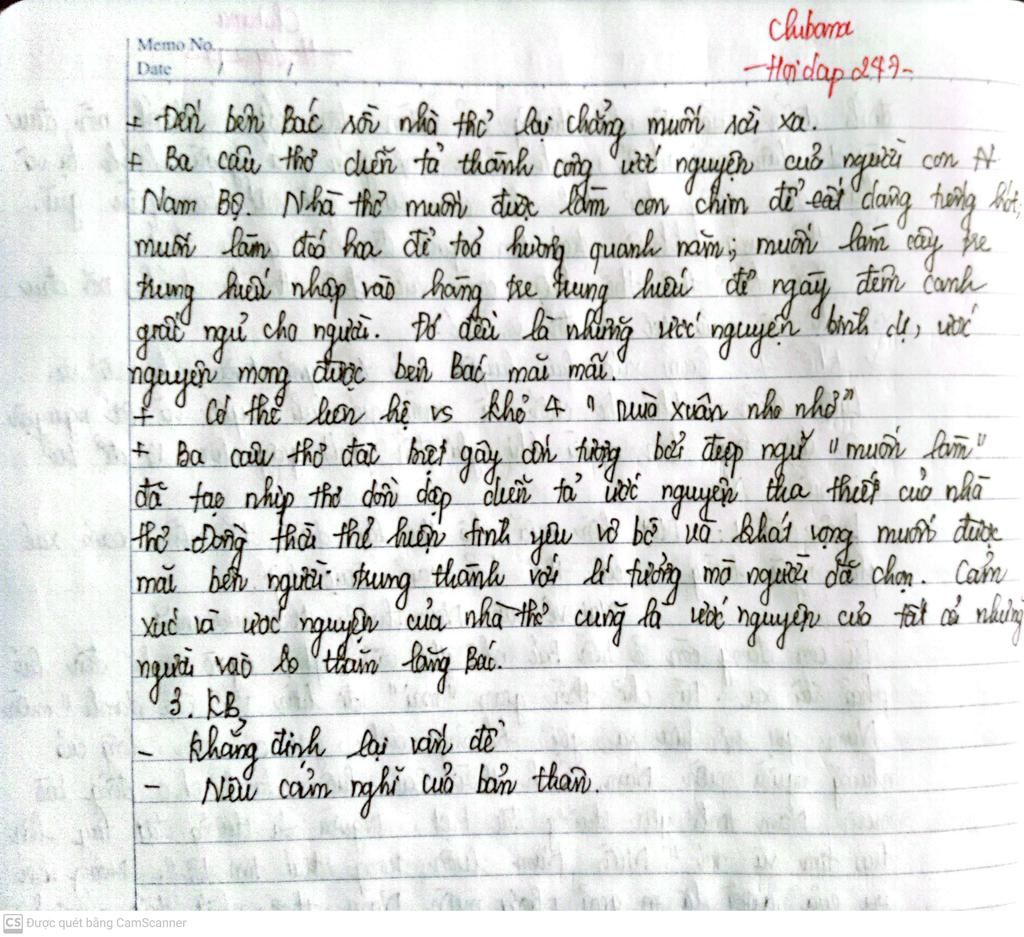 Chibana
Memo No.
-Hoidap 247-
Date / /
+ Đến bên Bác rồi nhà thơ lại chẳng muốn rời xa.
+ Ba câu thơ diễn tả thành công ước nguyện của người con N
Nam Bộ. Nhà thơ muốn được làm con chim để cất dâng tiếng hót;
muốn làm đoá hoa để toả hương quanh năm; muốn làm cây tre
trung hiếu nhập vào hàng tre trung hiếu để ngày đêm canh
giấc ngủ cho người. Đó đều là những ước nguyện bình dị, ước
nguyện mong được bên Bác mãi mãi.
+ Có thể liên hệ vs khổ 4 " Mùa xuân nho nhỏ"
+ Ba câu thơ đặc biệt gây ấn tượng bởi điệp ngữ "muốn làm"
đã tạo nhịp thơ dồn dập diễn tả ước nguyện tha thiết của nhà
thơ. Đồng thời thể hiện tình yêu vô bờ và khát vọng muốn được
mãi bên người; trung thành với lí tưởng mà người đã chọn. Cảm
xúc và ước nguyện của nhà thơ cũng là ước nguyện của tất cả những
người vào thăm lăng Bác.
3. KB
- Khẳng định lại vấn đề
- Nêu cảm nghĩ của bản thân.
CS Được quét bằng CamScanner